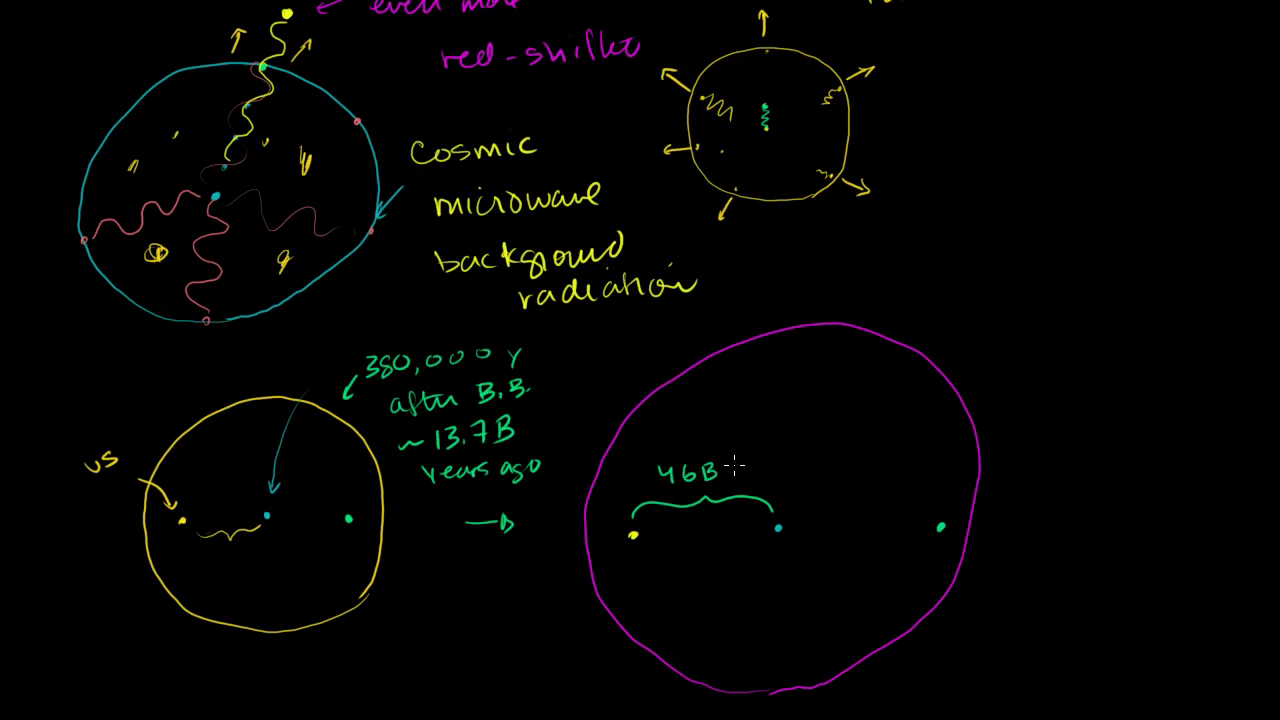 even more
red-shifted
cosmic
microwave
background
radiation
380,000 y
after B.B.
~ 13.7B
years ago
us
46B